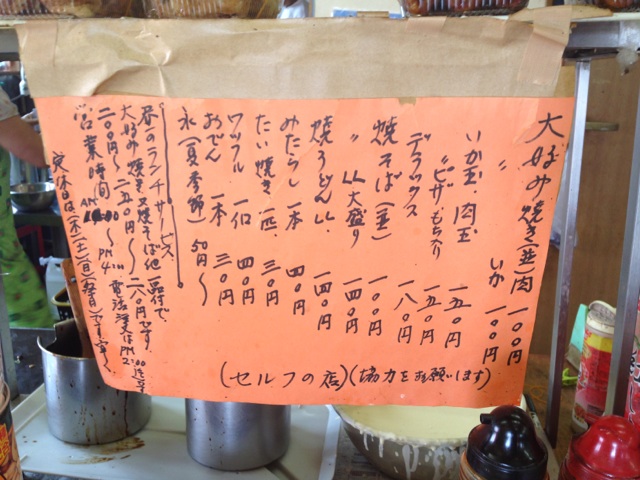 大好み焼き(並)肉 一〇〇円
〃 いか 一〇〇円
いか玉、肉玉 一五〇円
〃ピザ、もち入り 一五〇円
デラックス 一八〇円
焼そば(並) 一〇〇円
〃 〃大盛り 一四〇円
焼うどん〃 一四〇円
みたらし 一本 四〇円
たい焼き 一匹 三〇円
ワッフル 一ヶ 四〇円
おでん 一本 三〇円
氷(夏季節) 50円〜
昼一のランチサービス
大好み焼き又焼そば他一品付で、
二〇〇円〜二五〇円〜二八〇円です。
営業時間 AM 〜PM4
電話注文はPM2:00迄
定休日は(木)(土)(日)(祭日)です
(セルフの店)(協力をお願います)